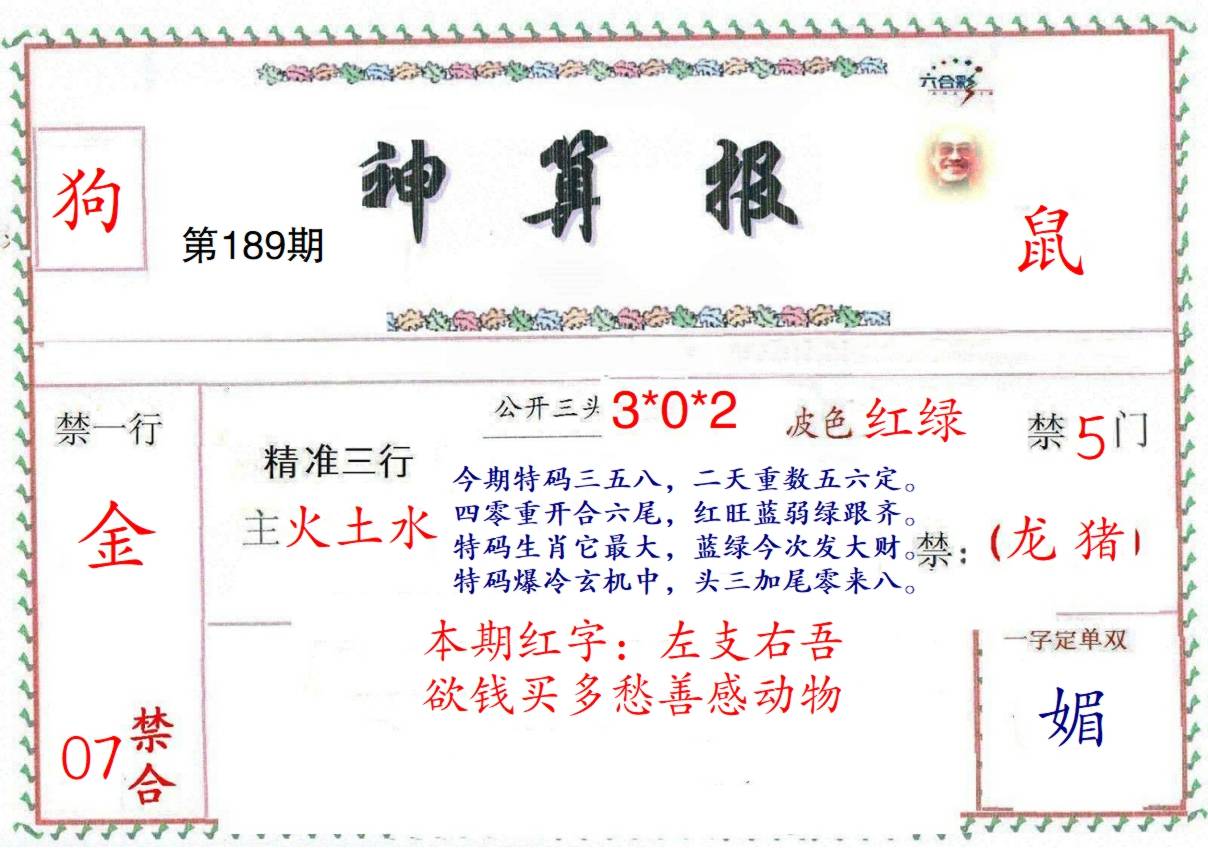 六合彩
神算报
狗
第189期
鼠
禁一行
金
07禁合
精准三行
主火土水
公开三头 3*0*2
波色红绿
禁5门
今期特码三五八，二天重数五六定。
四零重开合六尾，红旺蓝弱绿跟齐。
特码生肖它最大，蓝绿今次发大财。
特码爆冷玄机中，头三加尾零来八。
禁：（龙猪）
本期红字：左支右吾
欲钱买多愁善感动物
一字定单双
媚